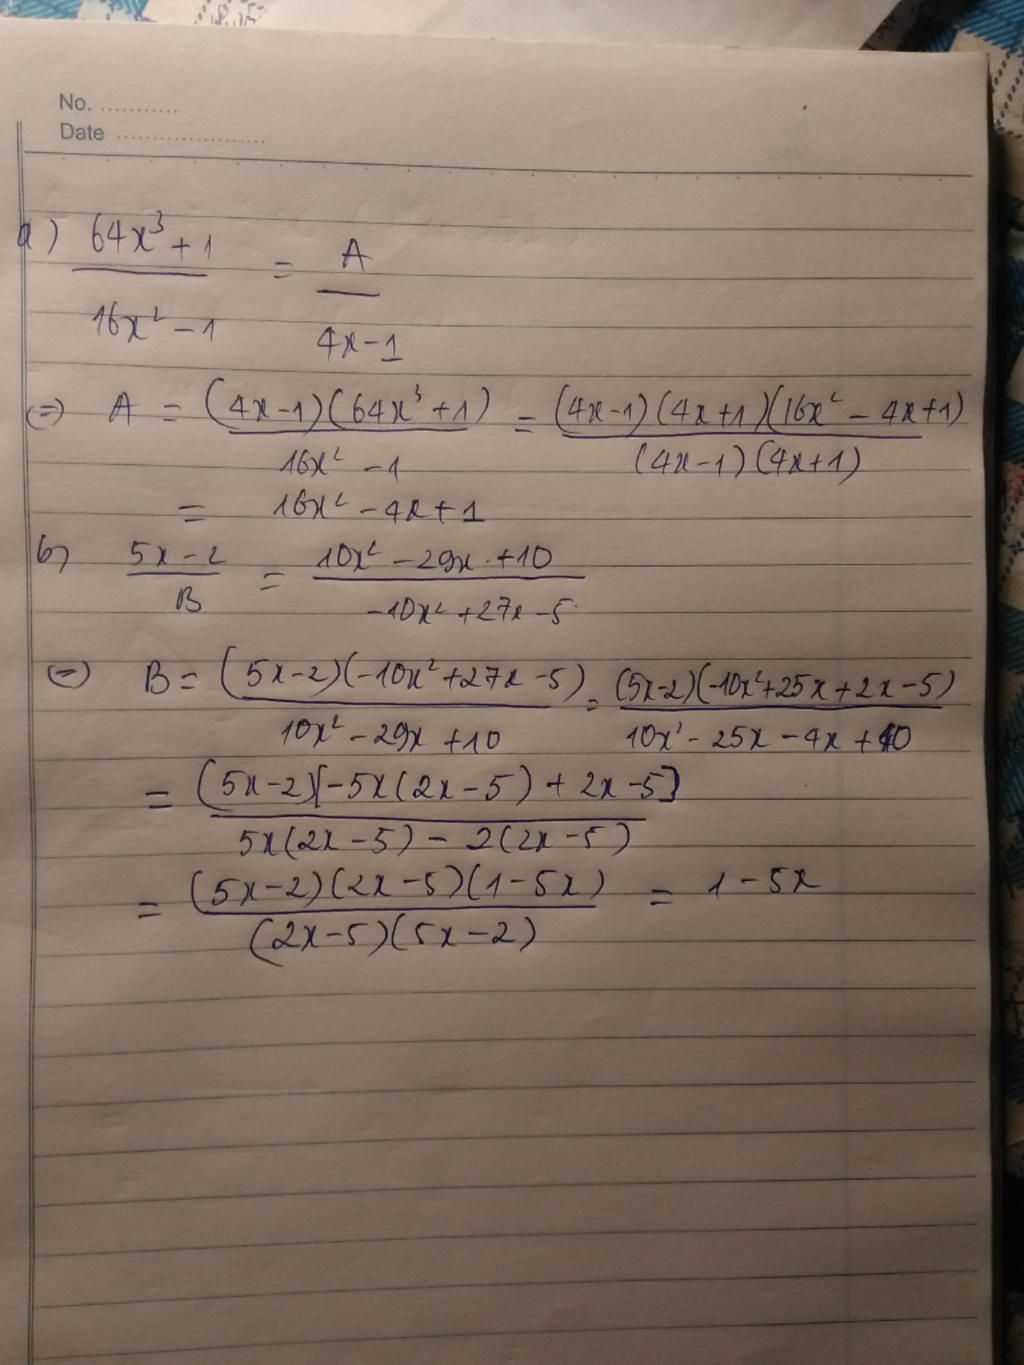 No. ...........
Date .....................
a) 64x³ + 1 / 16x² - 1 = A / 4x - 1
(=) A = (4x-1)(64x³+1) / 16x² - 1 = (4x-1)(4x+1)(16x² - 4x+1) / (4x-1)(4x+1)
= 16x² - 4x + 1
b) 5x - 2 / B = 10x² - 29x + 10 / -10x² + 27x - 5
(=) B = (5x-2)(-10x²+27x-5) / 10x² - 29x + 10 = (5x-2)(-10x²+25x+2x-5) / 10x² - 25x - 4x + 10
= (5x-2)[-5x(2x-5) + 2x-5] / 5x(2x-5) - 2(2x-5)
= (5x-2)(2x-5)(1-5x) / (2x-5)(5x-2) = 1 - 5x